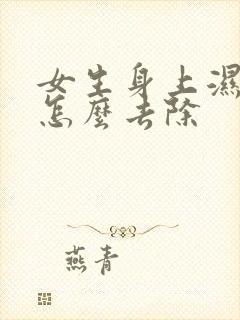 女生身上濕
怎麼去除
燕青